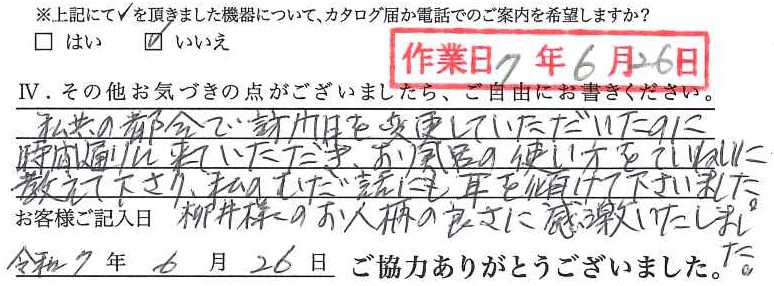 ※上記にて✓を頂きました機器について、カタログ届か電話でのご案内を希望しますか?
□ はい ☑ いいえ
作業日 7 年 6 月 26 日
Ⅳ.その他お気づきの点がございましたら、ご自由にお書きください。
私共の都合で訪問日を変更していただいたのに
時間通りに来ていただき、お風呂の使い方をていねいに
教えて下さり、私のむだ話にも耳を傾けて下さいました。
お客様ご記入日 柳井様のお人柄の良さに感激いたしました。
令和7 年 6 月 26 日 ご協力ありがとうございました。